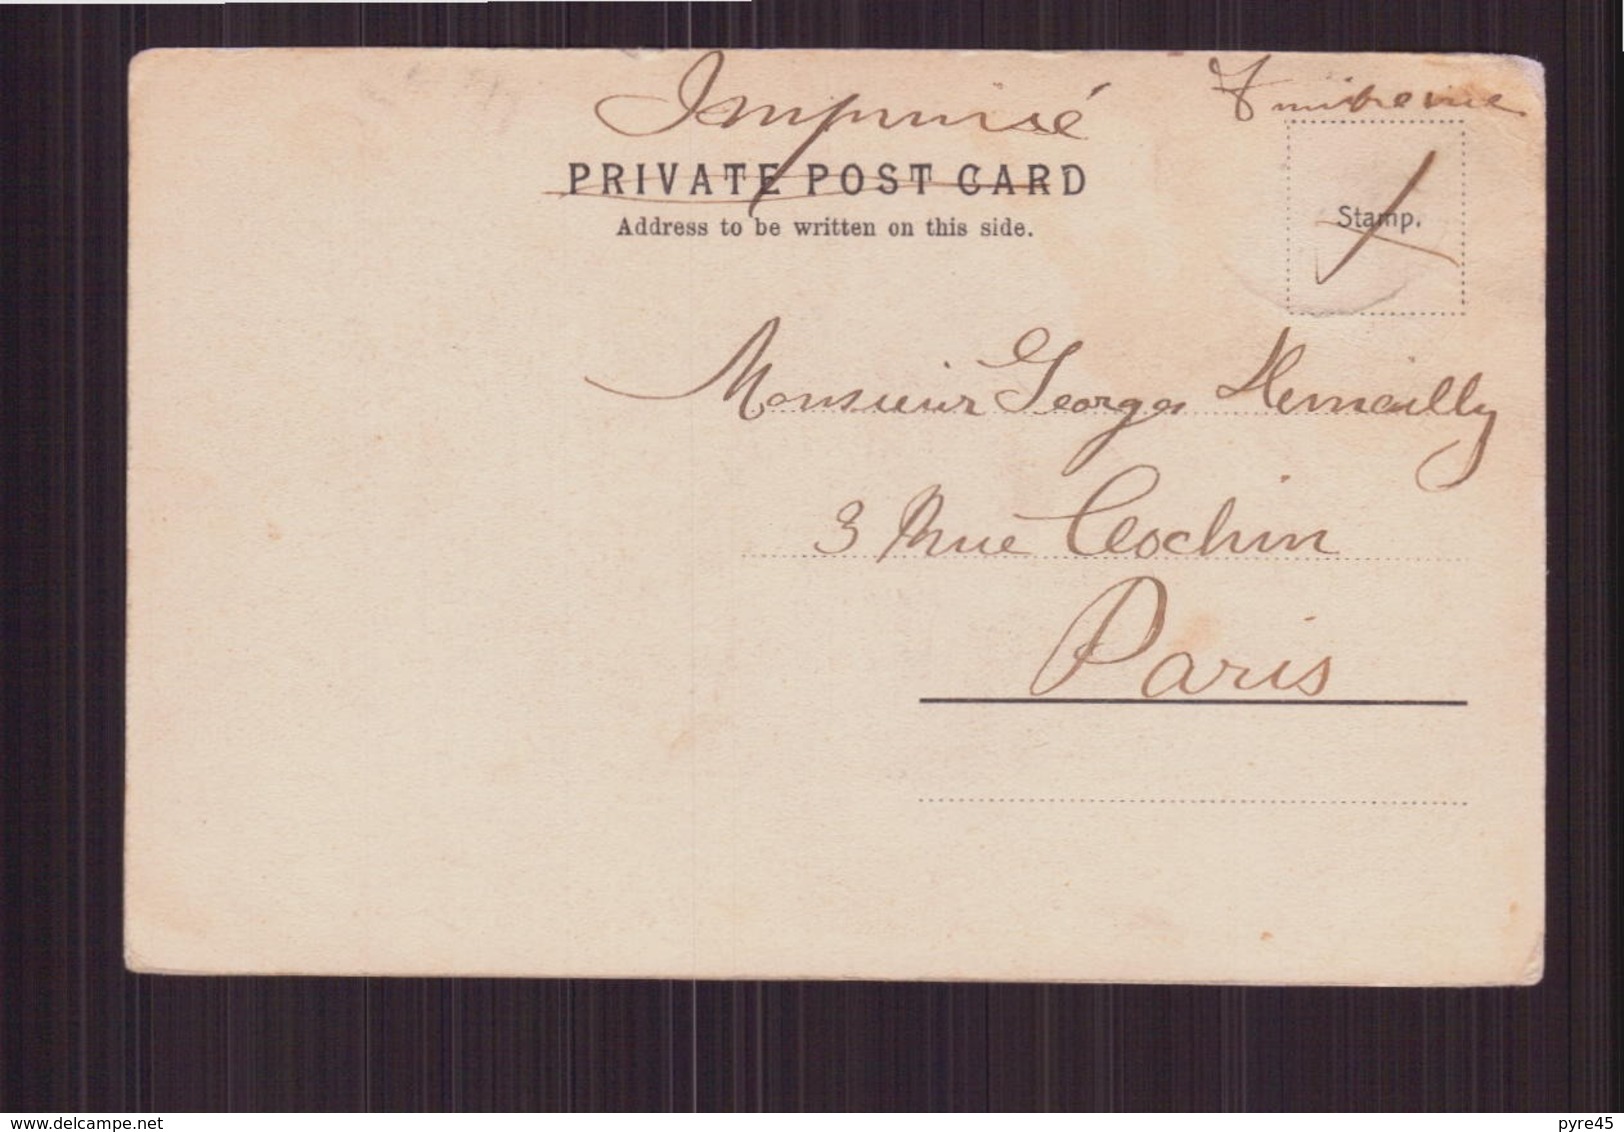 Imprimé
T. mitre vue
PRIVATE POST CARD
Address to be written on this side.
Stamp.
Monsieur Georges Hemeilly
3 Rue Cochin
Paris
www.delcampe.net
pyre45